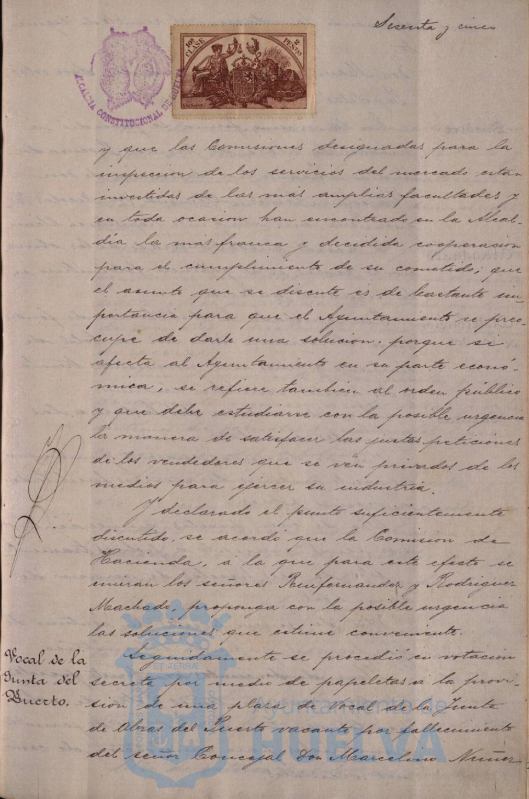 Sesenta y cinco
ALCALDIA CONSTITUCIONAL DE HUELVA
10ª CLASE 2 PESETAS
y que las Comisiones designadas para la
inspeccion de los servicios del mercado estan
investidas de las más amplias facultades y
en toda ocasion han encontrado en la Alcal-
día la mas franca y decidida cooperacion
para el cumplimiento de su cometido; que
el asunto que se discute es de bastante im
portancia para que el Ayuntamiento se preo
cupe de darle una solucion, porque si
afecta al Ayuntamiento en su parte econó-
mica, se refiere tambien al orden público
y que debe estudiarse con la posible urgencia
la manera de satisfacer las justas peticiones
de los vendedores que se ven privados de los
medios para ejercer su industria.
Y declarado el punto suficientemente
discutido, se acordó que la Comision de
Hacienda, á la que para este efecto se
uniran los señores Bunfernandez y Rodriguez
Machado, proponga con la posible urgencia
las soluciones que estime conveniente.
Vocal de la
Junta del
Puerto.
Seguidamente se procedió en votacion
secreta por medio de papeletas á la provi-
sion de una plaza de Vocal de la Junta
de Obras del Puerto vacante por fallecimiento
del señor Concejal Don Marcelino Nuñez
Ayuntamiento de
HUELVA